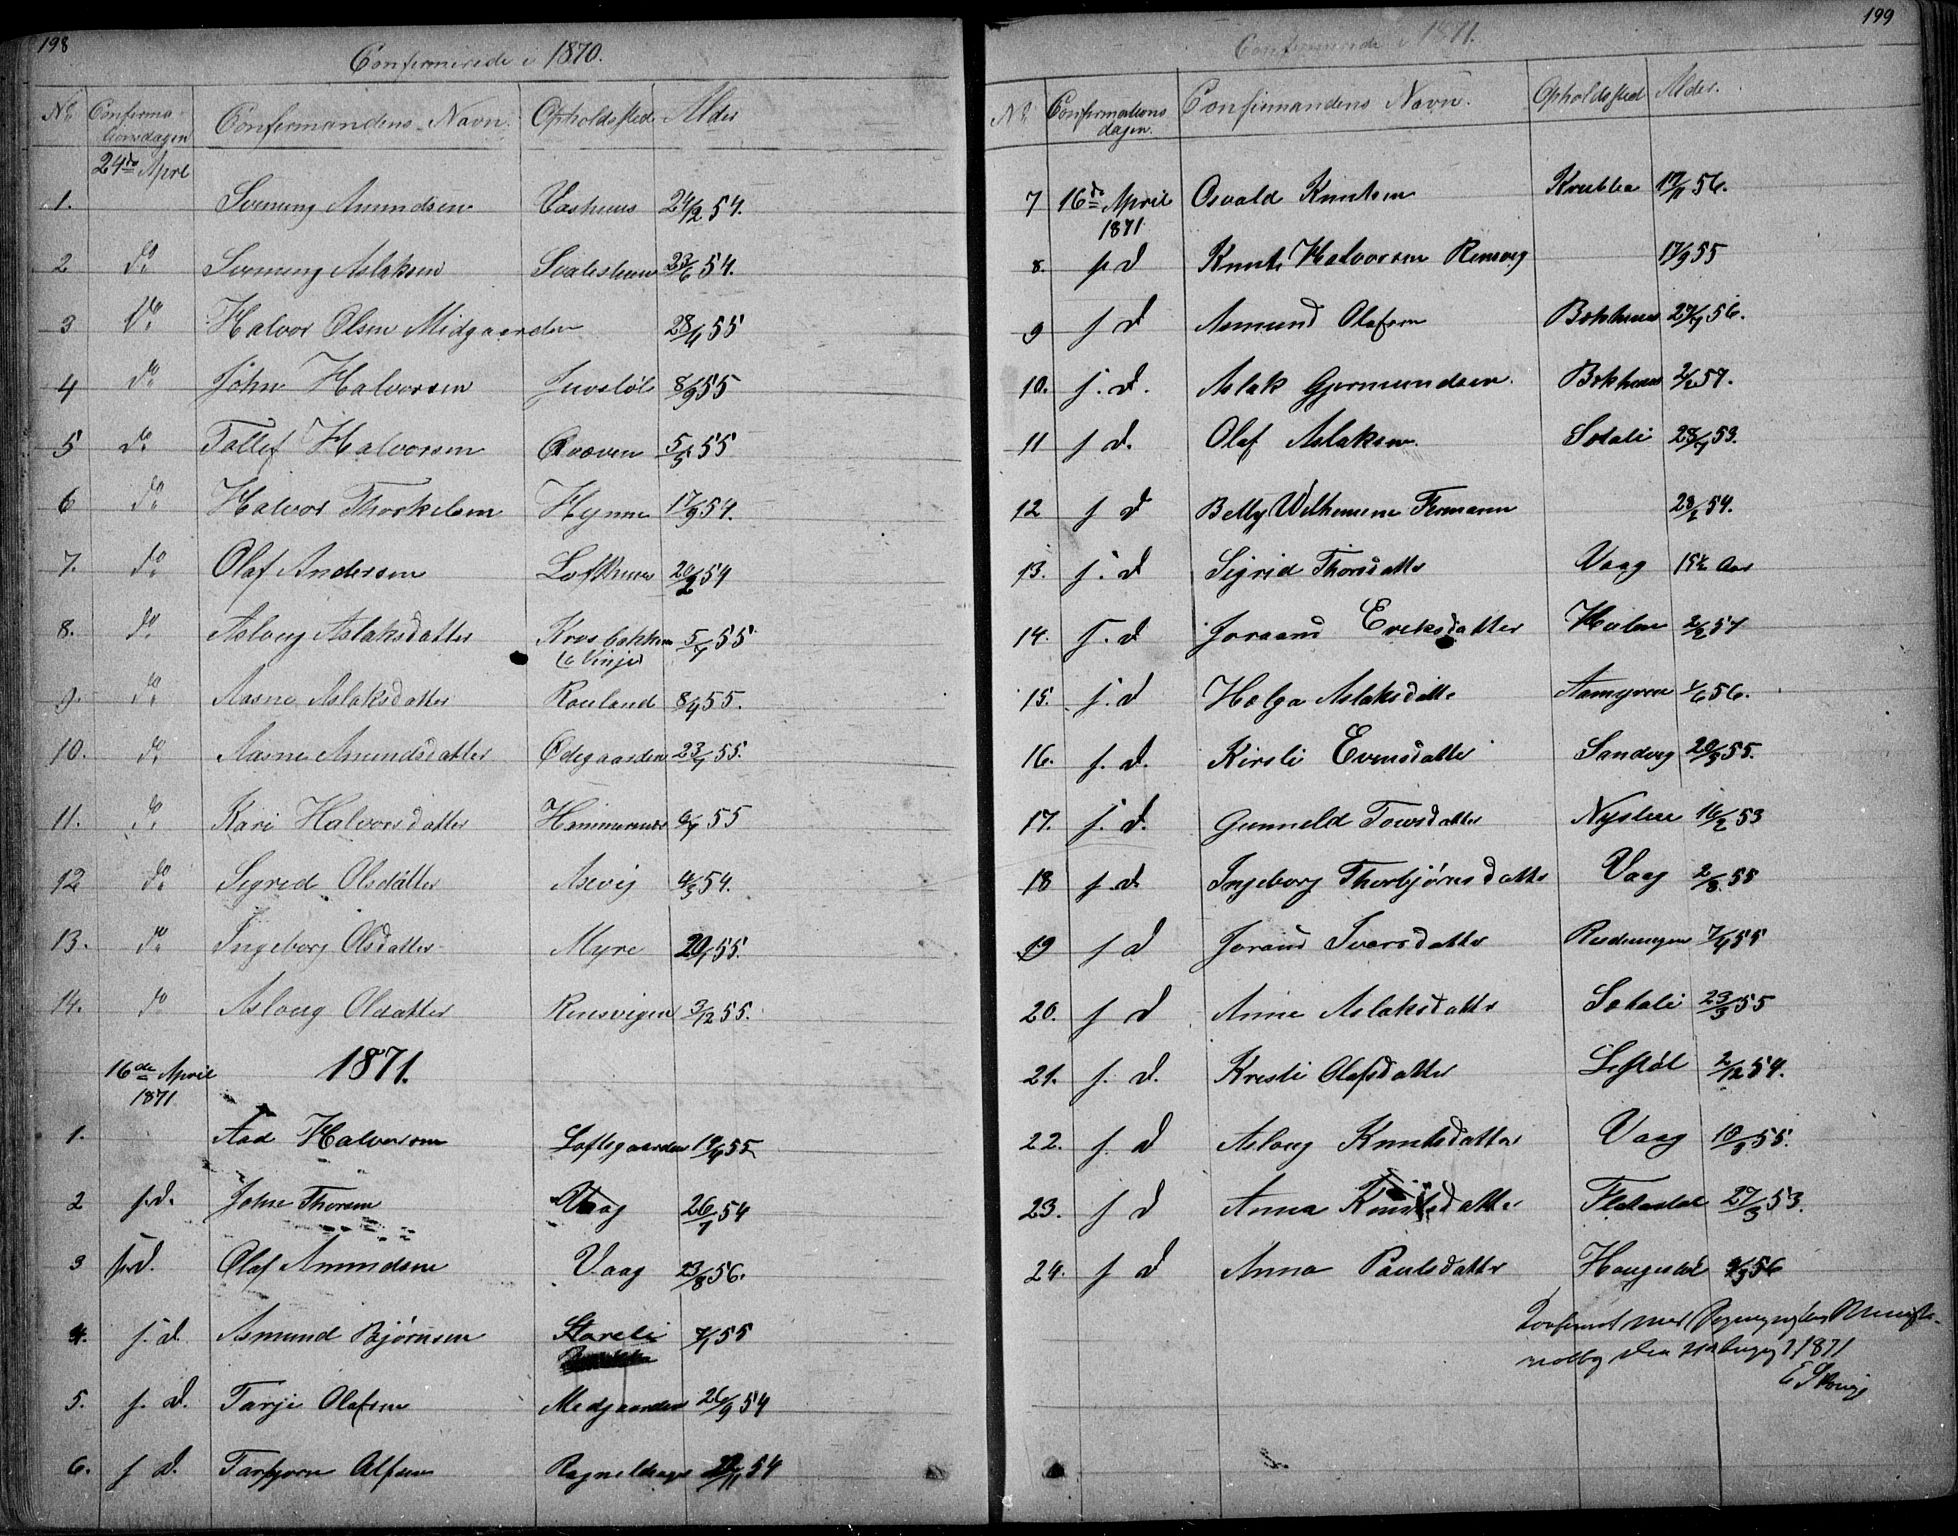 198
Confirmerede i 1870.
No Confirma- Confirmandens Navn. Opholdssted Alder
tionsdagen
24de April
1. Svenning Amundsen Vashuus 24/2 54.
2 do Svenning Aslaksen 23/6 54.
3 do Halvor Olsen Midgaarden 28/4 55
4 do John Halvorsen Juvsløl 8/9 55
5 do Tollef Halvorsen Qvæven 5/5 55
6 do Halvor Thorkelsen Hynne 17/9 54.
7. do Olaf Andersen Lofthuus 20/2 54
8. do Asloug Aslaksdatter Krosbakken 5/7 55
(i Vinje)
9. do Aasne Aslaksdatter Rouland 8/4 55.
10. do Aasne Amundsdatter Ødegaarden 23/1 55.
11. do Kari Halvorsdatter Hammernæs 55
12 do Sigrid Olsdatter Asvig 4/3 54.
13. do Ingeborg Olsdatter Myre 20/1 55.
14. do Asloug Olsdatter Rensvigen 3/12 55.
16de April 1871.
1871
1. Aad Halvorsen Loftsgaarden 55
2 s.d. John Thorsen Vaag 26/7 54
3 s.d. Olaf Amundsen Vaag 23/8 56.
4. s. d. Asmund Bjørnsen Stareli 7/1 55
5. s. d. Tarje Olafsen Medgaarden 26/9 54
6. s d. Tarbjørn Olfsen 54
199
Confirmerede i 1871.
No Confirmations Confirmandens Navn. Opholdssted Alder.
dagen.
7 16de April Osvald Knutsen Krubba 56.
1871
8. s d Knut Halvorsen Rensvig 17/9 55
9 s d Asmund Olafsen Bokhuus 56.
10. s. d. Aslak Gjermundsen Bokhuus 57.
11 s d. Olaf Aslaksen Sotali 53.
12 s d Betty Wilhemine Fermann 54.
13. s. d Sigrid Thorsdatter Vaag 15½ Aar
14. s. d Joraand Eriksdatter Holm 2/2 57
15. s. d Helga Aslaksdatter Aamyren 56.
16. s. d. Kirsti Evensdatter Sandvig 55.
17. s. d. Gunneld Tovsdatter Nystue 16/2 53
18 s d. Ingeborg Thorbjørnsdatter Vaag 2/8 55
19 s d Joraand Iversdatter 7/4 55
20. s d Anne Aslaksdatter Sotali 23/3 55
21. s. d. Kristi Olafsdatter Liftøl 2/12 54.
22. s d Asloug Knutsdatter Vaag 10/8 55.
23. s d Anna Knutsdatter Flatastøl 27/3 53.
24. s d Anna Poulsdatter 56
1871